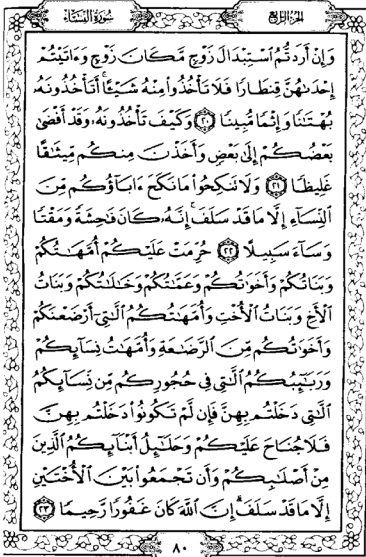 الجزء الرابع سورة النساء
وَإِنْ أَرَدتُّمُ ٱسْتِبْدَالَ زَوْجٍ مَّكَانَ زَوْجٍ وَءَاتَيْتُمْ
إِحْدَىٰهُنَّ قِنطَارًا فَلَا تَأْخُذُوا۟ مِنْهُ شَيْـًٔا ۚ أَتَأْخُذُونَهُۥ
بُهْتَٰنًا وَإِثْمًا مُّبِينًا ٢٠ وَكَيْفَ تَأْخُذُونَهُۥ وَقَدْ أَفْضَىٰ
بَعْضُكُمْ إِلَىٰ بَعْضٍ وَأَخَذْنَ مِنكُم مِّيثَٰقًا
غَلِيظًا ٢١ وَلَا تَنكِحُوا۟ مَا نَكَحَ ءَابَآؤُكُم مِّنَ
ٱلنِّسَآءِ إِلَّا مَا قَدْ سَلَفَ ۚ إِنَّهُۥ كَانَ فَٰحِشَةً وَمَقْتًا
وَسَآءَ سَبِيلًا ٢٢ حُرِّمَتْ عَلَيْكُمْ أُمَّهَٰتُكُمْ
وَبَنَاتُكُمْ وَأَخَوَٰتُكُمْ وَعَمَّٰتُكُمْ وَخَٰلَٰتُكُمْ وَبَنَاتُ
ٱلْأَخِ وَبَنَاتُ ٱلْأُخْتِ وَأُمَّهَٰتُكُمُ ٱلَّٰتِىٓ أَرْضَعْنَكُمْ
وَأَخَوَٰتُكُم مِّنَ ٱلرَّضَٰعَةِ وَأُمَّهَٰتُ نِسَآئِكُمْ
وَرَبَٰٓئِبُكُمُ ٱلَّٰتِى فِى حُجُورِكُم مِّن نِّسَآئِكُمُ
ٱلَّٰتِى دَخَلْتُم بِهِنَّ فَإِن لَّمْ تَكُونُوا۟ دَخَلْتُم بِهِنَّ
فَلَا جُنَاحَ عَلَيْكُمْ وَحَلَٰٓئِلُ أَبْنَآئِكُمُ ٱلَّذِينَ
مِنْ أَصْلَٰبِكُمْ وَأَن تَجْمَعُوا۟ بَيْنَ ٱلْأُخْتَيْنِ
إِلَّا مَا قَدْ سَلَفَ ۗ إِنَّ ٱللَّهَ كَانَ غَفُورًا رَّحِيمًا ٢٣
٨٠